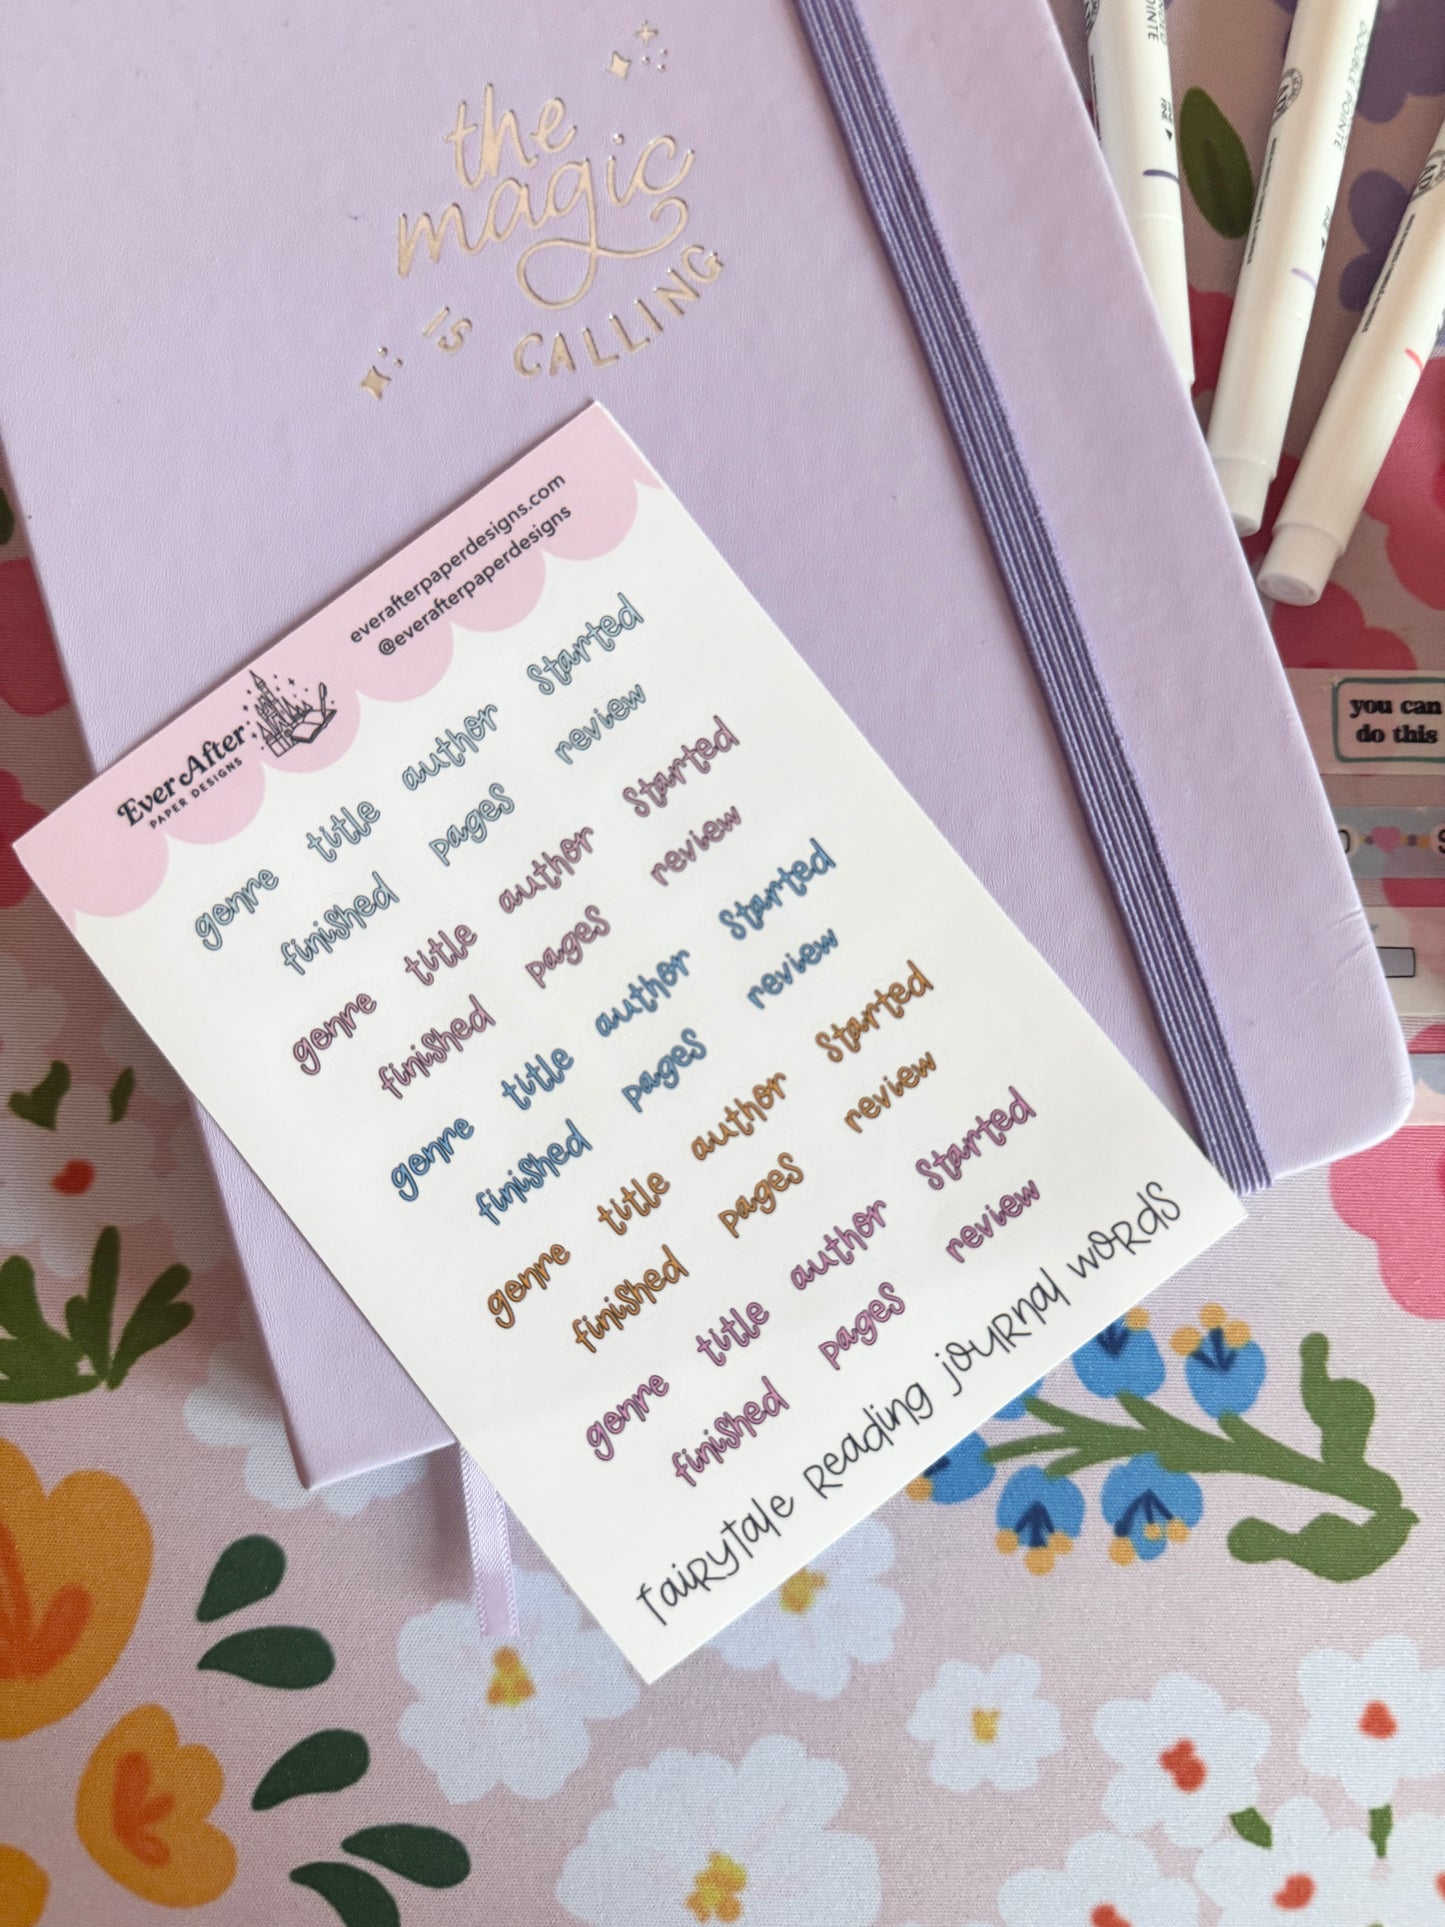 the
magic
IS
CALLING
everafterpaperdesigns.com
@everafterpaperdesigns
Ever After
PAPER DESIGNS
genre title author started
finished pages review
genre title author started
finished pages review
genre title author started
finished pages review
genre title author started
finished pages review
genre title author started
finished pages review
fairytale reading journal words
DOUBLE POINTE
you can
do this